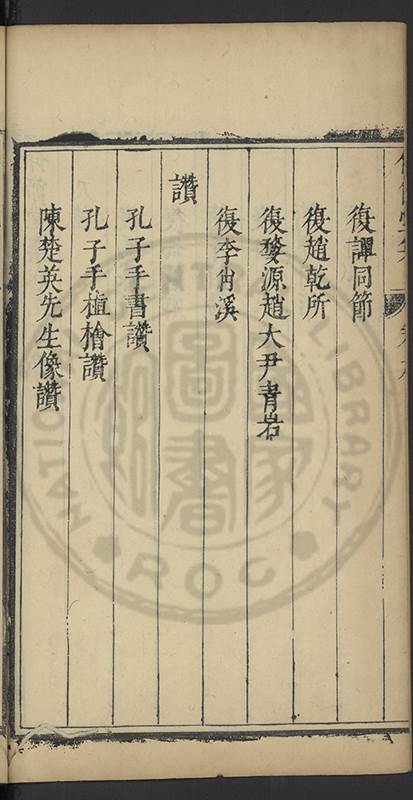 復譚同節
復趙乾所
復婺源趙大尹青岩
復李肖溪
讚
孔子手書讚
孔子手植檜讚
陳楚英先生像讚